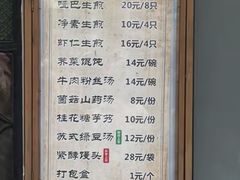 哑巴生煎 20元/8只
净素生煎 10元/4只
虾仁生煎 16元/4只
荠菜馄饨 14元/碗
牛肉粉丝汤 14元/碗
菌菇山药汤 8元/份
桂花糖芋艿 10元/份
苏式绿豆汤 12元/份
紧酵馒头 28元/袋
打包盒 1元/个